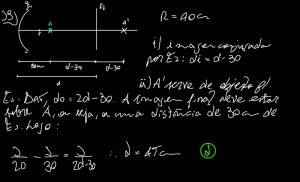 39)
R = 40cm
E₂
A
A'
30cm
d-30
d-30
d
i) imagem conjugada
por E₂: di = d-30
ii) A' serve de objeto p/
E₁. Daí, do = 2d-30. A imagem final deve estar
sobre A, ou seja, a uma distância de 30cm de
E₁. Logo:
2/20 - 2/30 = 2/2d-30 ∴ d = 45cm d